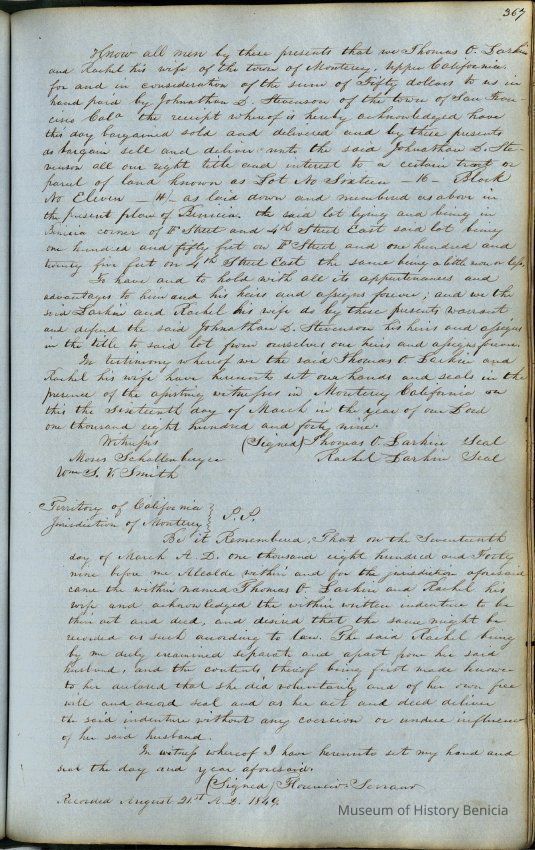 367
Know all men by these presents that we Thomas O. Larkin
and Rachel his wife of the town of Monterey, Upper California.
for and in consideration of the sum of Fifty dollars to us in
hand paid by Johnathan D. Stevenson of the town of San Fran-
cisco Cala the receipt whereof is hereby acknowledged have
this day bargained sold and delivered and by these presents
do bargain sell and deliver unto the said Johnathan D. Ste-
venson all our right title and interest to a certain tract or
parcel of land known as Lot No Sixteen — 16 — Block
No Eleven — 11 — as laid down and numbered as above in
the present plan of Benicia. the said lot lying and being in
Benicia corner of Street and 4th Street East said lot being
one hundred and fifty feet on Street and one hundred and
twenty five feet on 4th Street East the same being a little more or less,
To have and to hold with all its appurtenances and
advantages to him and his heirs and assigns forever; and we the
said Larkin and Rachel his wife do by these presents warrant
and defend the said Johnathan D. Stevenson his heirs and assigns
in the title to said lot from ourselves our heirs and assigns forever.
In testimony whereof we the said Thomas O. Larkin and
Rachel his wife have hereunto set our hands and seals in the
presence of the witnesses in Monterey California on
this the Sixteenth day of March in the year of our Lord
one thousand eight hundred and forty nine.
Witness (Signed) Thomas O. Larkin Seal
Moses Schallenberger Rachel Larkin Seal
Wm S. V. Smith
Territory of California
Jurisdiction of Monterey } S.S.
Be it Remembered, That on the Seventeenth
day of March A.D. one thousand eight hundred and Forty
nine before me Alcalde within and for the jurisdiction aforesaid
came the within named Thomas O. Larkin and Rachel his
wife and acknowledged the within written indenture to be
their act and deed, and desired that the same might be
recorded as such according to law. The said Rachel being
by me duly examined separate and apart from her said
husband, and the contents thereof being first made known
to her declared that she did voluntarily and of her own free
will and accord seal and as her act and deed deliver
the said indenture without any coercion or undue influence
of her said husband.
In witness whereof I have hereunto set my hand and
seal the day and year aforesaid.
(Signed) Florencio Serrano
Recorded August 21st A.D. 1849.
Museum of History Benicia